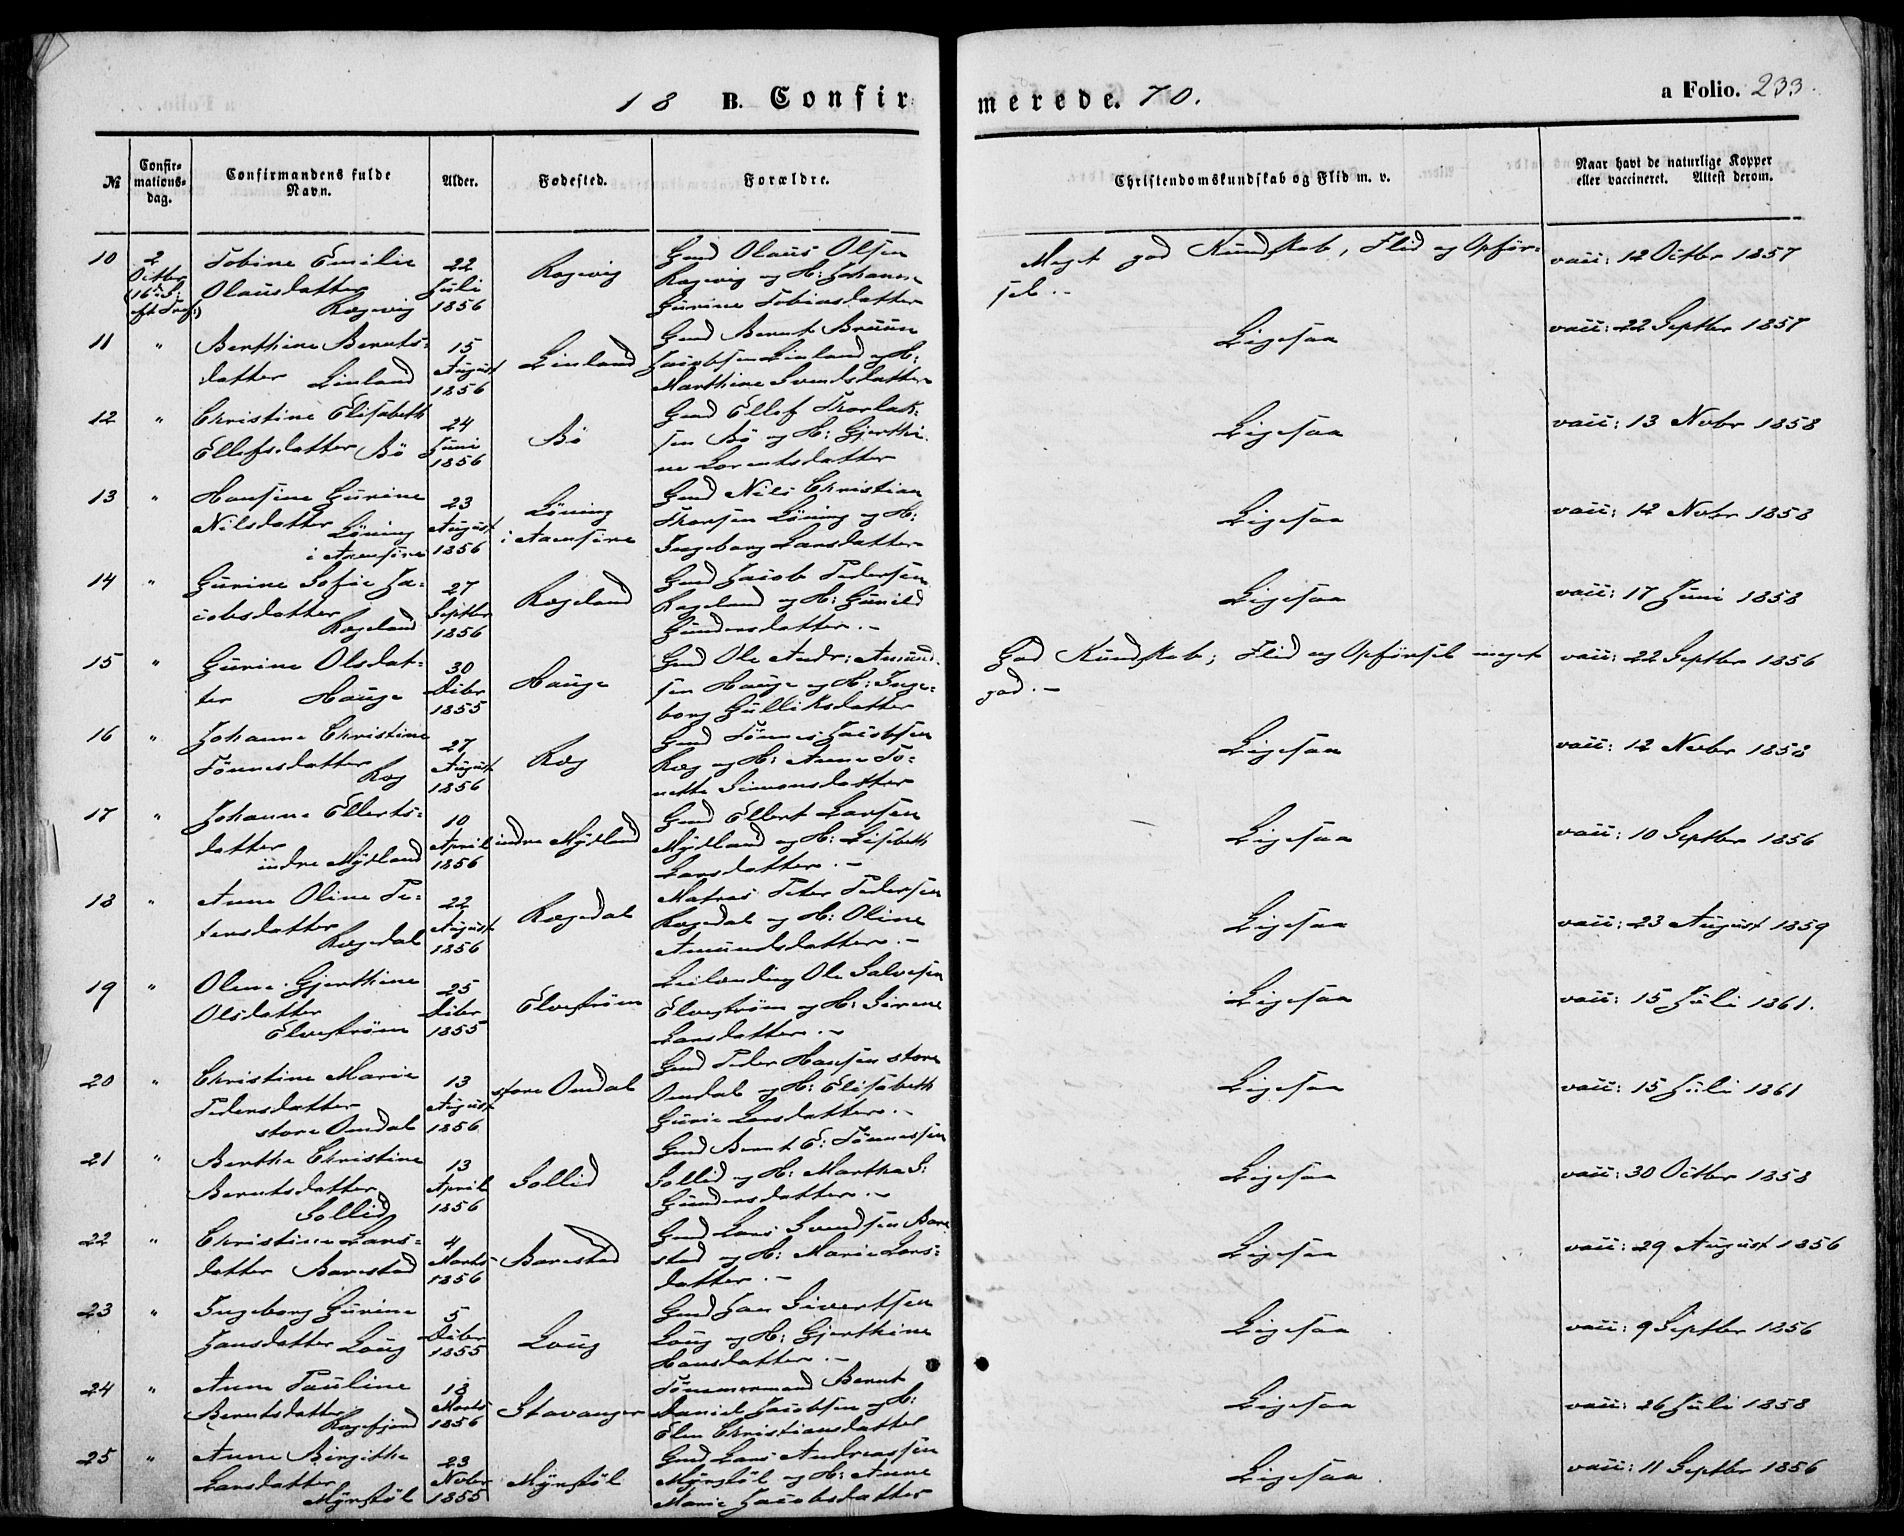 18 B. Confirmerede. 70. a Folio. 233.
№ Confirmationsdag. Confirmandens fulde Navn. Alder. Fødested. Forældre. Christendomskundskab og Flid m. v. Naar havt de naturlige Kopper eller vaccineret. Attest derom.
10 2 Octber (16de S: eft Tref:) Tobine Emilie Olausdatter Rægevig 22 Juli 1856 Rægevig Gmd Olaus Olsen Rægevig og H: Johanne Gurine Tobiasdatter Meget god Kundskab, Flid og Opførsel.- vacc: 12 Octbr 1857
11 " Berthine Berntsdatter Linland 15 August 1856 Linland Gmd Bernt Bruun Jacobsen Linland og H: Marthine Svendsdatter Ligesaa vacc: 22 Septbr 1857
12 " Christine Elisabeth Ellefsdatter Bö 24 Juni 1856 Bö Gmd Ellef Thorlaksen Bö og H: Gjerthine Lorentsdatter Ligesaa vacc: 13 Novbr 1858
13 " Hansine Gurine Nilsdatter Löning i Aaensire 23 August 1856 Löning i Aaensire Gmd Nils Christian Thorsen Löning og H: Ingeborg Larsdatter Ligesaa vacc: 12 Novbr 1858
14 " Gurine Sofie Jacobsdatter Rægeland 27 Septbr 1856 Rægeland Gmd Jacob Pedersen Rægeland og H: Gunild Gundersdatter.- Ligesaa vacc: 17 Juni 1858
15 " Gurine Olsdatter Hauge 30 Dcbr 1855 Hauge Gmd Ole Andr: Amundsen Hauge og H: Ingeborg Gulliksdatter God Kundskab; Flid og Opførsel meget god.- vacc: 22 Septbr 1856
16 " Johanne Christine Tönnesdatter Ræg 27 August 1856 Ræg Gmd Tönnes Jacobsen Ræg og H: Anne Tonette Simonsdatter Ligesaa vacc: 12 Novbr 1858
17 " Johanne Ellertsdatter indre Mydland 10 April 1856 indre Mydland Gmd Ellert Larsen Mydland og H: Lisebeth Larsdatter.- Ligesaa vacc: 10 Septbr 1856
18 " Anne Oline Petersdatter Rægedal 22 August 1856 Rægedal Matros Peter Pedersen Rægedal og H: Oline Amundsdatter.- Ligesaa vacc: 23 August 1859
19 " Olene Gjerthine Olsdatter Elvestrøm 25 Dcbr 1855 Elvestrøm Leilænding Ole Salvesen Elvestrøm og H: Sirene Larsdatter.- Ligesaa vacc: 15 Juli 1861.
20 " Christine Marie Pedersdatter store Omdal 13 August 1856 store Omdal Gmd Peder Hansen store Omdal og H: Elisabeth Gurie Larsdatter.- Ligesaa vacc: 15 Juli 1861
21 " Berthe Christine Berntsdatter Sollid 13 April 1856 Sollid Gmd Bernt E: Tönnessen Sollid og H: Marthe S: Gundersdatter.- Ligesaa vacc: 30 Octbr 1858
22 " Christine Larsdatter Barstad 4 Marts 1856 Barstad Gmd Lars Svendsen Barstad og H: Marie Larsdatter.- Ligesaa vacc: 29 August 1856
23 " Ingeborg Gurine Jansdatter Loug 5 Dcbr 1855 Loug Gmd Jan Sivertsen Loug og H: Gjerthine Hansdatter.- Ligesaa vacc: 9 Septbr 1856
24 " Anne Pauline Berntsdatter Rægefjord 18 Marts 1856 Stavanger Tömmermand Bernt Daniel Jacobsen og H: Elen Christiansdatter Ligesaa vacc: 26 Juli 1858
25 " Anne Birgithe Larsdatter Myrstöl 23 Novbr 1855 Myrstöl Gmd Lars Andreassen Myrstöl og H: Anne Marie Jacobsdatter Ligesaa. vacc: 11 Septbr 1856